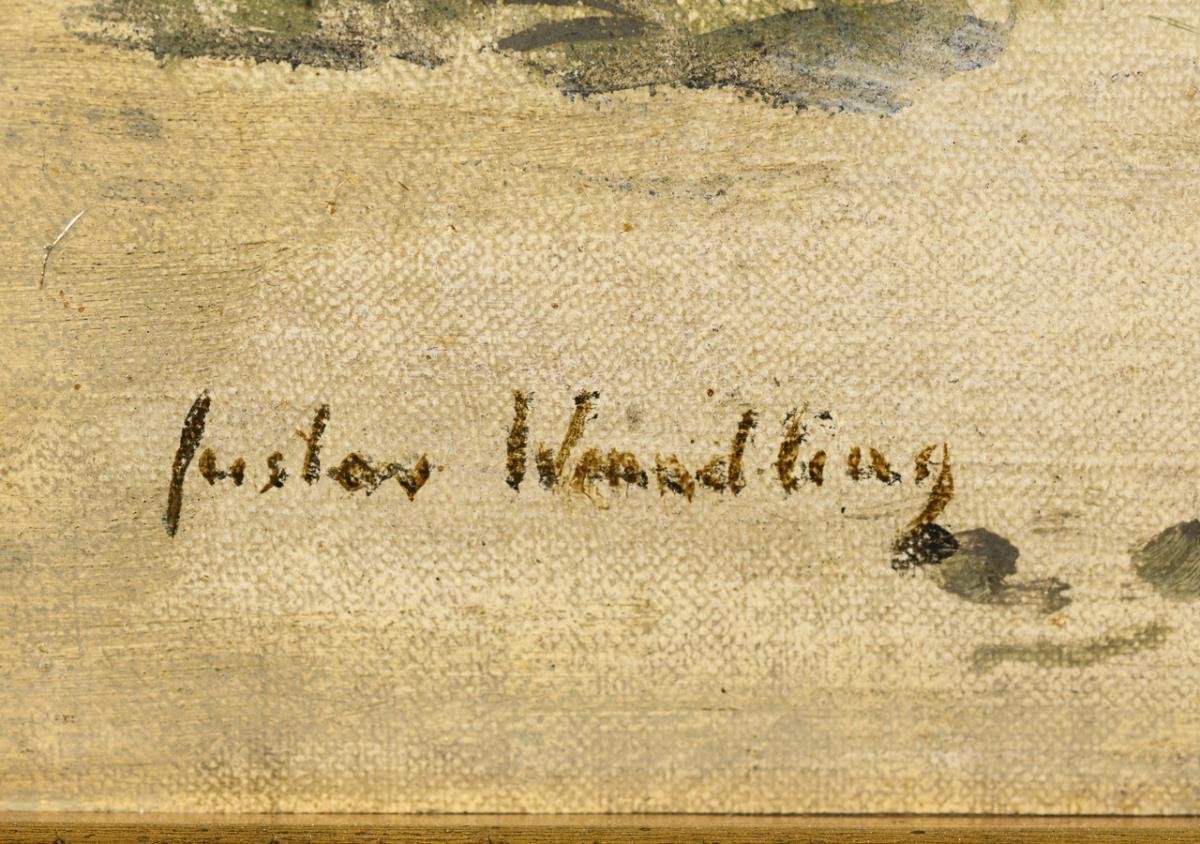 Gustav Wendling